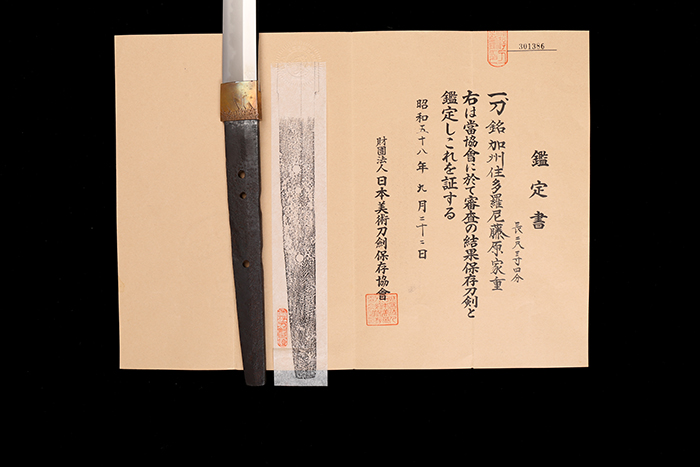 301386
鑑定書
一、刀 銘 加州住多羅尼藤原家重
長二尺三寸四分
右は當協會に於て審査の結果保存刀剣と
鑑定しこれを証する
昭和五十八年九月二十二日
財團法人日本美術刀剣保存協會